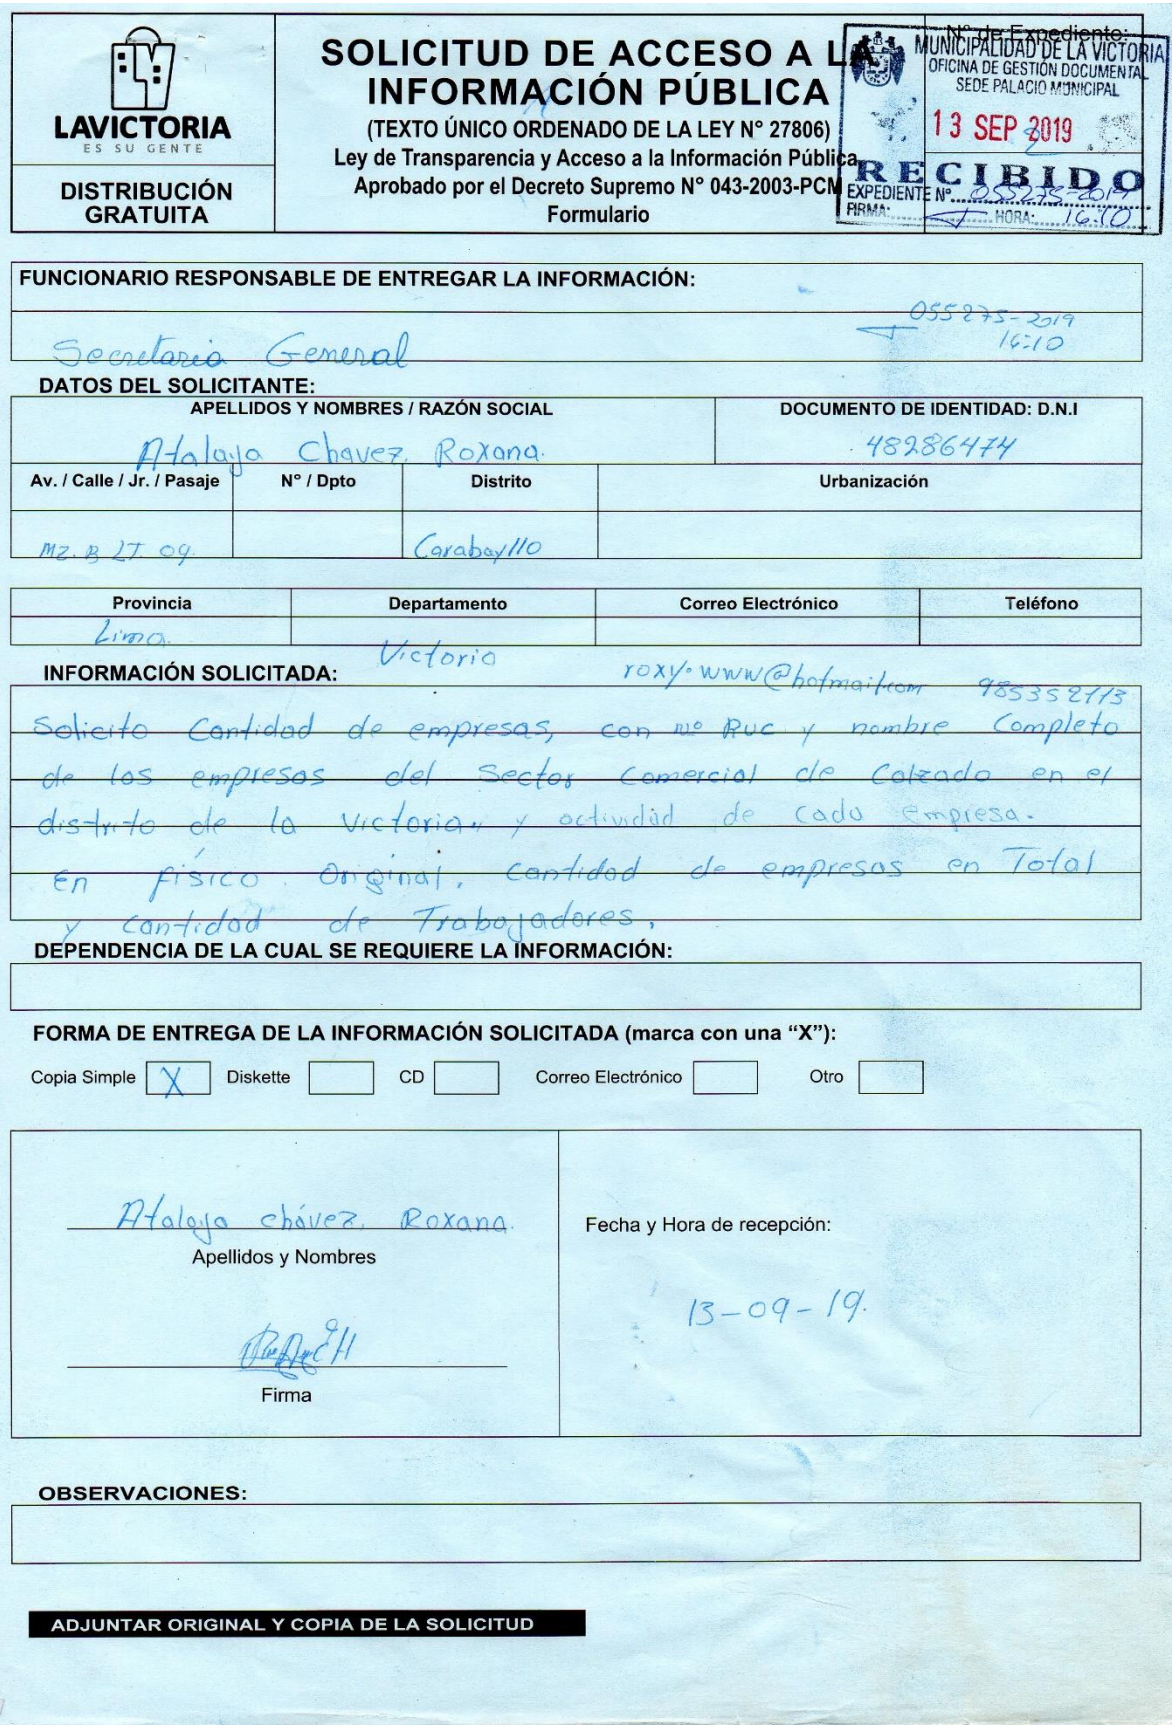 LAVICTORIA
ES SU GENTE
DISTRIBUCIÓN
GRATUITA
SOLICITUD DE ACCESO A LA
INFORMACIÓN PÚBLICA
(TEXTO ÚNICO ORDENADO DE LA LEY N° 27806)
Ley de Transparencia y Acceso a la Información Pública
Aprobado por el Decreto Supremo N° 043-2003-PCM
Formulario
N° de Expediente:
MUNICIPALIDAD DE LA VICTORIA
OFICINA DE GESTIÓN DOCUMENTAL
SEDE PALACIO MUNICIPAL
13 SEP 2019
RECIBIDO
EXPEDIENTE N° 055275-2019
FIRMA: HORA: 16:10
FUNCIONARIO RESPONSABLE DE ENTREGAR LA INFORMACIÓN:
055275-2019
16:10
Secretaria General
DATOS DEL SOLICITANTE:
APELLIDOS Y NOMBRES / RAZÓN SOCIAL DOCUMENTO DE IDENTIDAD: D.N.I
Atalaya Chavez. Roxana. 48286474
Av. / Calle / Jr. / Pasaje N° / Dpto Distrito Urbanización
MZ. B LT. 09. Carabayllo
Provincia Departamento Correo Electrónico Teléfono
Lima. Victoria roxy.www@hotmail.com 985352113
INFORMACIÓN SOLICITADA:
Solicito Cantidad de empresas, con N° Ruc y nombre Completo
de las empresas del Sector Comercial de Calzado en el
distrito de la Victoria,, y actividad de cada empresa.
En físico Original. Cantidad de empresas en Total
y cantidad de Trabajadores.
DEPENDENCIA DE LA CUAL SE REQUIERE LA INFORMACIÓN:
FORMA DE ENTREGA DE LA INFORMACIÓN SOLICITADA (marca con una “X”):
Copia Simple X Diskette CD Correo Electrónico Otro
Atalaya chávez. Roxana.
Apellidos y Nombres
Firma
Fecha y Hora de recepción:
13-09-19.
OBSERVACIONES:
ADJUNTAR ORIGINAL Y COPIA DE LA SOLICITUD